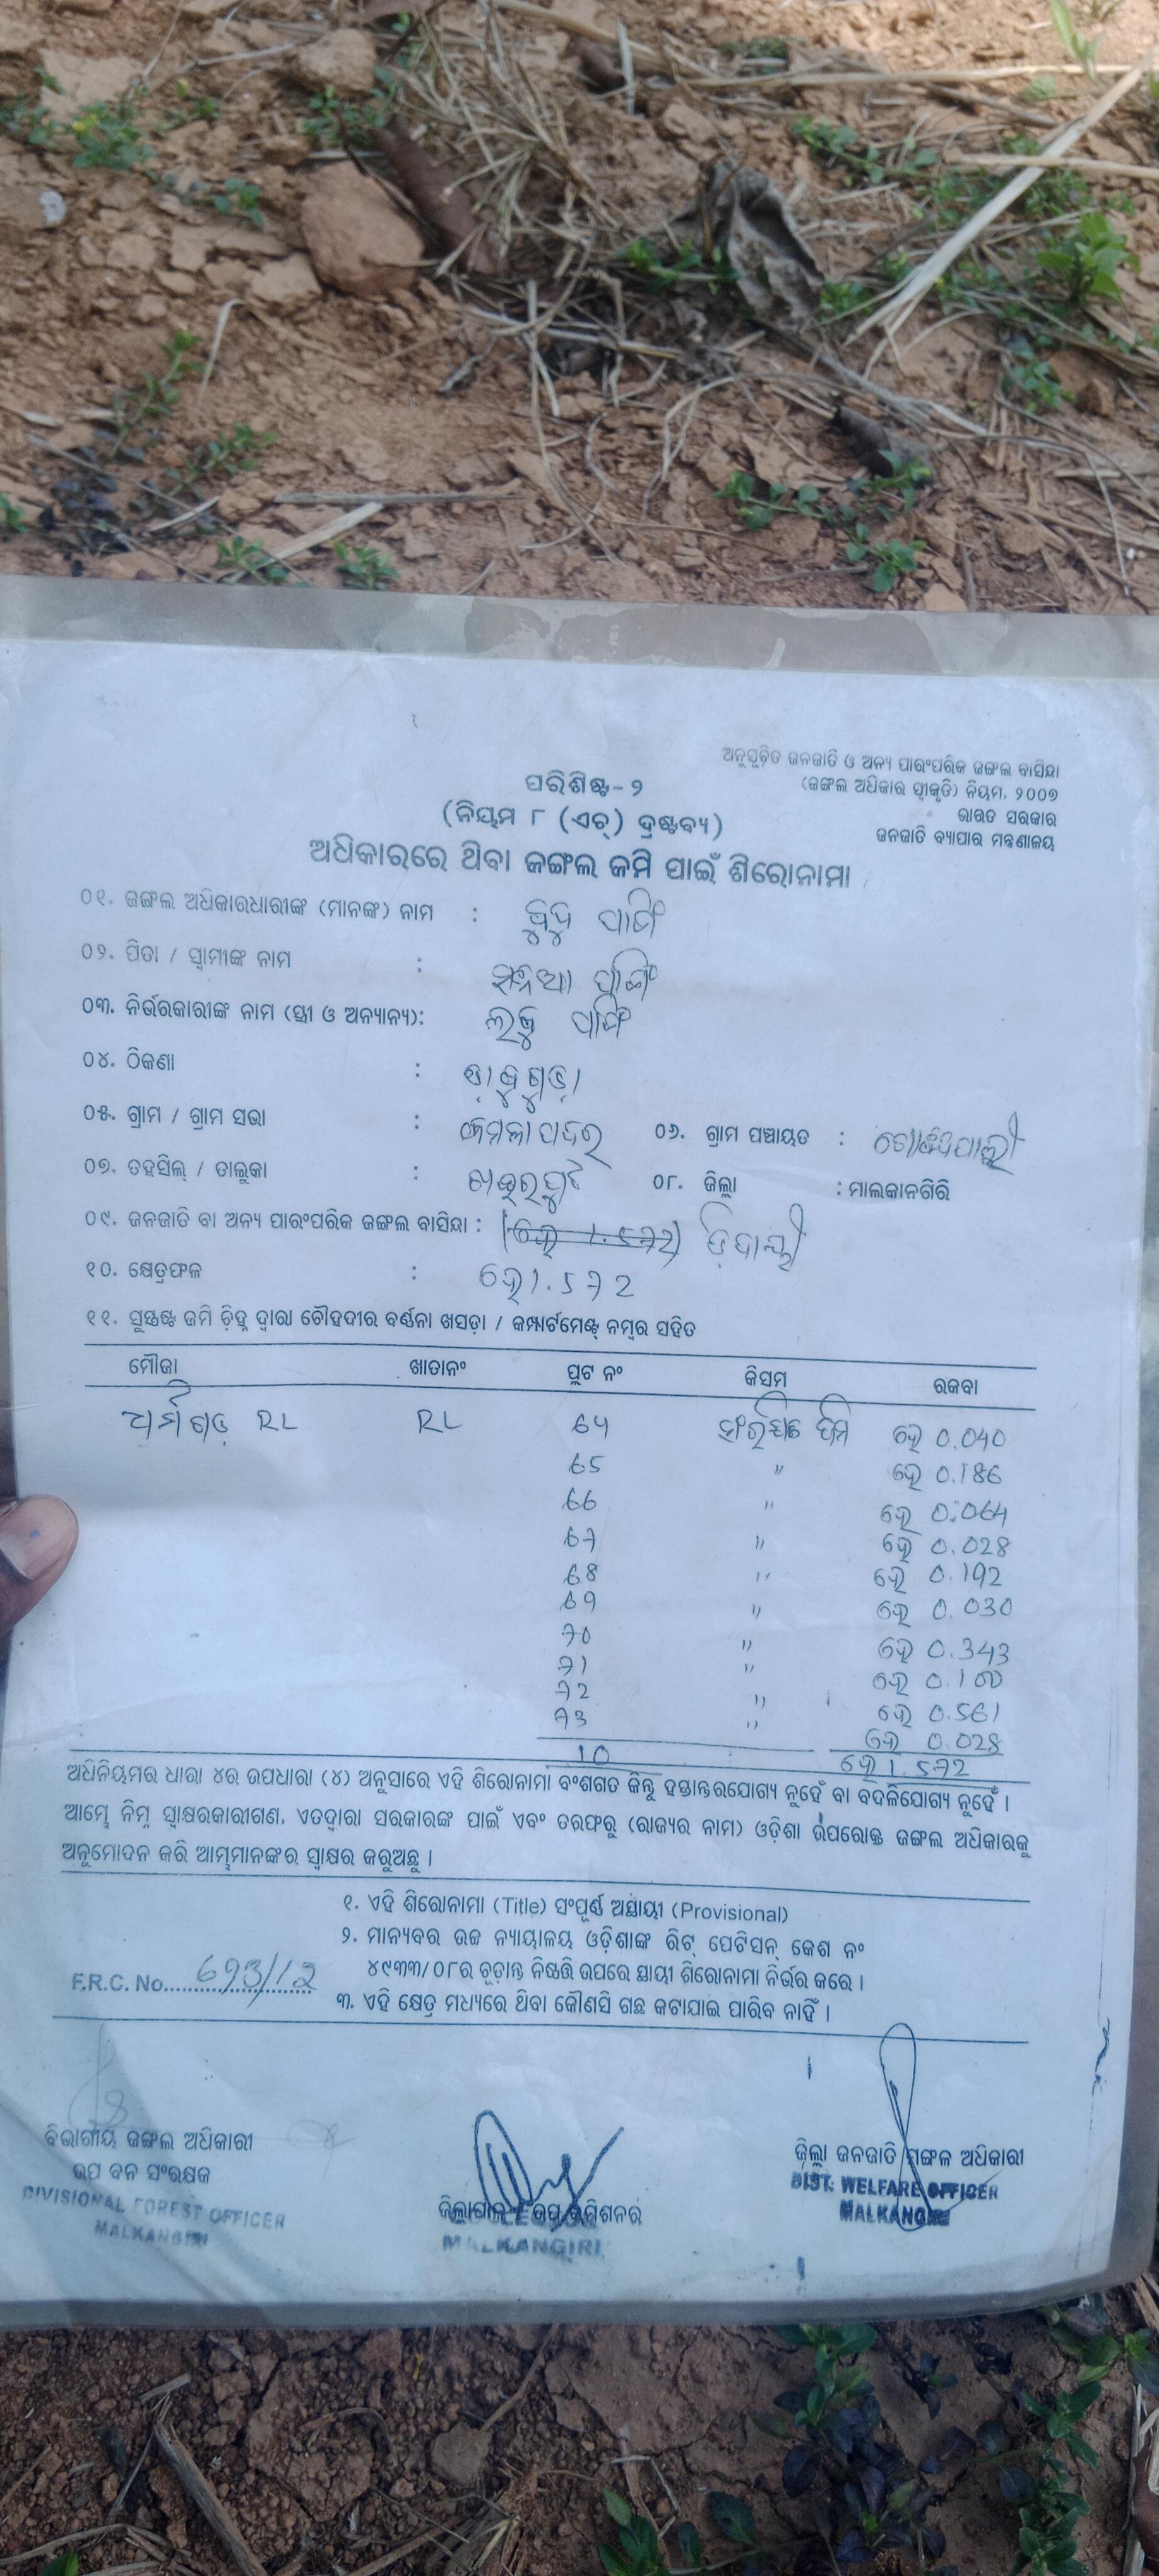 ଅନୁସୂଚିତ ଜନଜାତି ଓ ଅନ୍ୟ ପାରଂପରିକ ଜଙ୍ଗଲ ବାସିନ୍ଦା
(ଜଙ୍ଗଲ ଅଧିକାର ସ୍ୱୀକୃତି) ନିୟମ, ୨୦୦୭
ଭାରତ ସରକାର
ଜନଜାତି ବ୍ୟାପାର ମନ୍ତ୍ରଣାଳୟ
ପରିଶିଷ୍ଟ-୨
(ନିୟମ ୮ (ଏଚ୍) ଦ୍ରଷ୍ଟବ୍ୟ)
ଅଧିକାରରେ ଥିବା ଜଙ୍ଗଲ ଜମି ପାଇଁ ଶିରୋନାମା
୦୧. ଜଙ୍ଗଲ ଅଧିକାରଧାରୀଙ୍କ (ମାନଙ୍କ) ନାମ :
୦୨. ପିତା / ସ୍ୱାମୀଙ୍କ ନାମ :
୦୩. ନିର୍ଭରକାରୀଙ୍କ ନାମ (ସ୍ତ୍ରୀ ଓ ଅନ୍ୟାନ୍ୟ):
୦୪. ଠିକଣା :
୦୫. ଗ୍ରାମ / ଗ୍ରାମ ସଭା : ୦୬. ଗ୍ରାମ ପଞ୍ଚାୟତ :
୦୭. ତହସିଲ୍ / ତାଲୁକା : ୦୮. ଜିଲ୍ଲା : ମାଲକାନଗିରି
୦୯. ଜନଜାତି ବା ଅନ୍ୟ ପାରଂପରିକ ଜଙ୍ଗଲ ବାସିନ୍ଦା :
୧୦. କ୍ଷେତ୍ରଫଳ : ହେ 1.572
୧୧. ସୁସ୍ପଷ୍ଟ ଜମି ଚିହ୍ନ ଦ୍ୱାରା ଚୌହଦୀର ବର୍ଣ୍ଣନା ଖସଡ଼ା / କମ୍ପାର୍ଟମେଣ୍ଟ ନମ୍ବର ସହିତ
ମୌଜା ଖାତାନଂ ପ୍ଲଟ ନଂ କିସମ ରକବା
RL RL 64 ହେ 0.040
65 " ହେ 0.186
66 " ହେ 0.064
67 " ହେ 0.028
68 " ହେ 0.192
69 " ହେ 0.030
70 " ହେ 0.343
71 " ହେ 0.100
72 " ହେ 0.561
73 " ହେ 0.028
10 ହେ 1.572
ଅଧିନିୟମର ଧାରା ୪ର ଉପଧାରା (୪) ଅନୁସାରେ ଏହି ଶିରୋନାମା ବଂଶଗତ କିନ୍ତୁ ହସ୍ତାନ୍ତରଯୋଗ୍ୟ ନୁହେଁ ବା ବଦଳିଯୋଗ୍ୟ ନୁହେଁ ।
ଆମ୍ଭେ ନିମ୍ନ ସ୍ୱାକ୍ଷରକାରୀଗଣ, ଏତଦ୍ୱାରା ସରକାରଙ୍କ ପାଇଁ ଏବଂ ତରଫରୁ (ରାଜ୍ୟର ନାମ) ଓଡ଼ିଶା ଉପରୋକ୍ତ ଜଙ୍ଗଲ ଅଧିକାରକୁ
ଅନୁମୋଦନ କରି ଆମ୍ଭମାନଙ୍କର ସ୍ୱାକ୍ଷର କରୁଅଛୁ ।
୧. ଏହି ଶିରୋନାମା (Title) ସଂପୂର୍ଣ୍ଣ ଅସ୍ଥାୟୀ (Provisional)
୨. ମାନ୍ୟବର ଉଚ୍ଚ ନ୍ୟାୟାଳୟ ଓଡ଼ିଶାଙ୍କ ରିଟ୍ ପେଟିସନ୍ କେଶ ନଂ
୪୯୩୩/୦୮ର ଚୂଡ଼ାନ୍ତ ନିଷ୍ପତ୍ତି ଉପରେ ସ୍ଥାୟୀ ଶିରୋନାମା ନିର୍ଭର କରେ ।
F.R.C. No. 693/12
୩. ଏହି କ୍ଷେତ୍ର ମଧ୍ୟରେ ଥିବା କୌଣସି ଗଛ କଟାଯାଇ ପାରିବ ନାହିଁ ।
ବିଭାଗୀୟ ଜଙ୍ଗଲ ଅଧିକାରୀ
ଉପ ବନ ସଂରକ୍ଷକ
DIVISIONAL FOREST OFFICER
MALKANGIRI
ଜିଲ୍ଲାପାଳ ଉପ କମିଶନର
MALKANGIRI
ଜିଲ୍ଲା ଜନଜାତି ମଙ୍ଗଳ ଅଧିକାରୀ
DIST. WELFARE OFFICER
MALKANGIRI